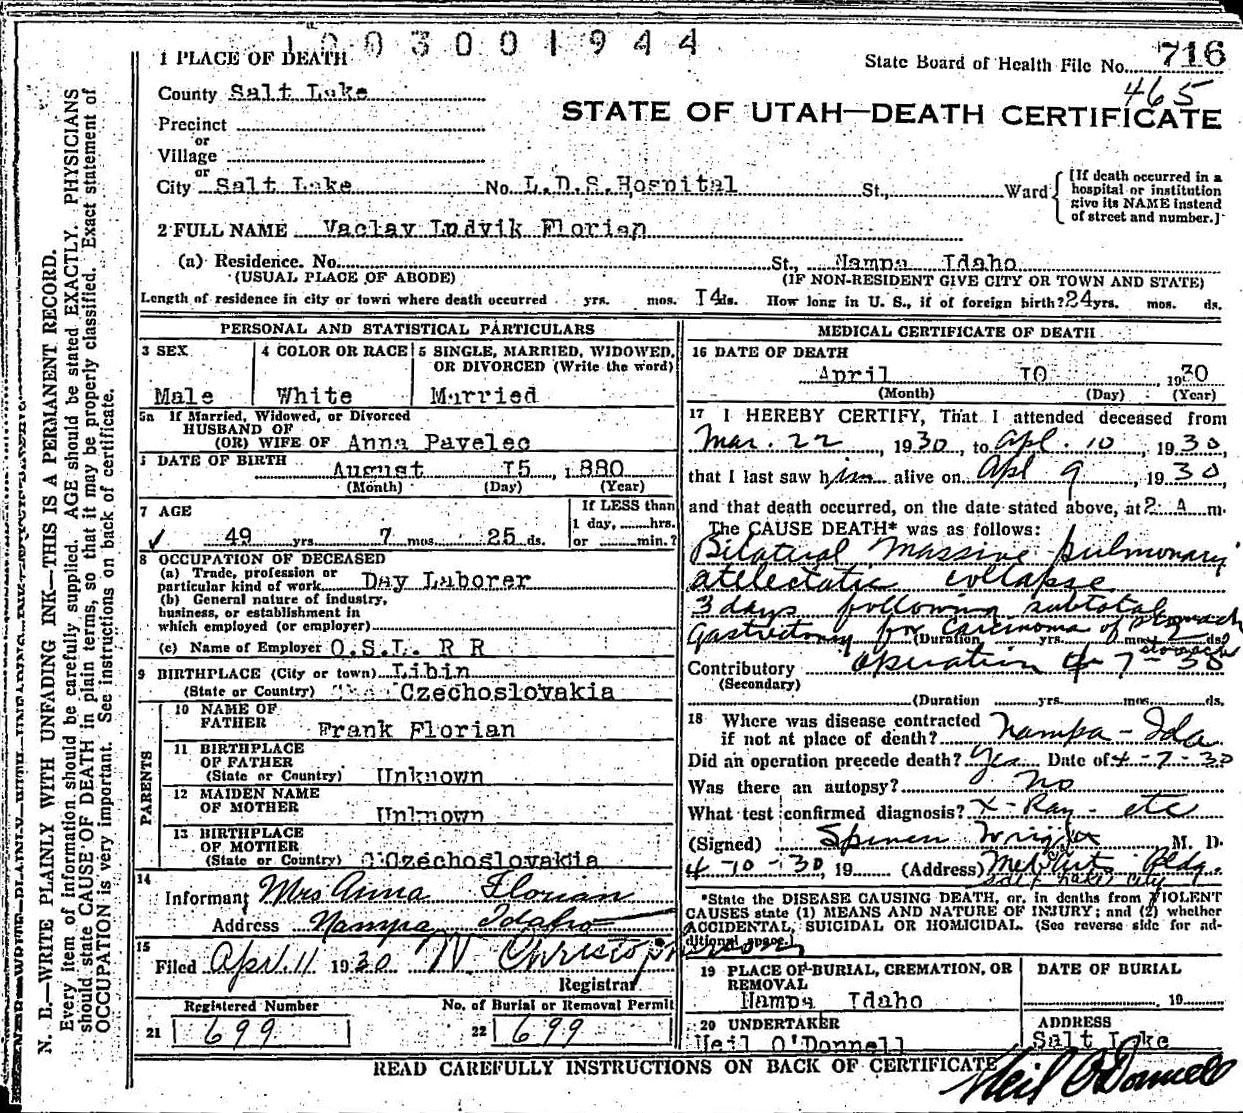 1003001944
1 PLACE OF DEATH
State Board of Health File No. 716
465
County Salt Lake
STATE OF UTAH—DEATH CERTIFICATE
Precinct
or
Village
or
City Salt Lake No. L.D.S. Hospital St., Ward
[If death occurred in a hospital or institution give its NAME instead of street and number.]
2 FULL NAME Vaclav Ludvik Florian
(a) Residence. No. St., Nampa Idaho
(USUAL PLACE OF ABODE) (IF NON-RESIDENT GIVE CITY OR TOWN AND STATE)
Length of residence in city or town where death occurred yrs. mos. 14 ds. How long in U. S., if of foreign birth? 24 yrs. mos. ds.
PERSONAL AND STATISTICAL PARTICULARS
3 SEX 4 COLOR OR RACE 5 SINGLE, MARRIED, WIDOWED, OR DIVORCED (Write the word)
Male White Married
5a If Married, Widowed, or Divorced
HUSBAND OF
(OR) WIFE OF Anna Pavelec
DATE OF BIRTH August 15 1880
(Month) (Day) (Year)
7 AGE If LESS than
1 day, hrs.
49 yrs. 7 mos. 25 ds. or min.?
8 OCCUPATION OF DECEASED
(a) Trade, profession or
particular kind of work Day Laborer
(b) General nature of industry,
business, or establishment in
which employed (or employer)
(c) Name of Employer O.S.L. R R
9 BIRTHPLACE (City or town) Libin
(State or Country) Czechoslovakia
PARENTS
10 NAME OF
FATHER Frank Florian
11 BIRTHPLACE
OF FATHER
(State or Country) Unknown
12 MAIDEN NAME
OF MOTHER Unknown
13 BIRTHPLACE
OF MOTHER
(State or Country) Czechoslovakia
14
Informant Mrs Anna Florian
Address Nampa, Idaho
15
Filed Apr. 11 1930 W Christopherson
Registrar
Registered Number No. of Burial or Removal Permit
21 699 22 699
MEDICAL CERTIFICATE OF DEATH
16 DATE OF DEATH
April 10 1930
(Month) (Day) (Year)
17 I HEREBY CERTIFY, That I attended deceased from
Mar. 22, 1930, to Apl. 10, 1930,
that I last saw him alive on Apl 9, 1930,
and that death occurred, on the date stated above, at 2 A m.
The CAUSE DEATH* was as follows:
Bilateral Massive pulmonary
atelectatic collapse
3 days following subtotal
gastrectomy for Carcinoma of stomach
(Duration yrs. mos. ds.
Contributory Operation 4-7-30
(Secondary)
(Duration yrs. mos. ds.
18 Where was disease contracted
if not at place of death? Nampa - Ida
Did an operation precede death? Yes Date of 4-7-30
Was there an autopsy? No
What test confirmed diagnosis? X-Ray - etc
(Signed) Spencer Wright M. D.
4-10-30, 19 (Address) Med Arts Bldg.
Salt Lake City
*State the DISEASE CAUSING DEATH, or, in deaths from VIOLENT
CAUSES state (1) MEANS AND NATURE OF INJURY; and (2) whether
ACCIDENTAL, SUICIDAL OR HOMICIDAL. (See reverse side for ad-
ditional space.)
19 PLACE OF BURIAL, CREMATION, OR
REMOVAL
Nampa Idaho
DATE OF BURIAL
19
20 UNDERTAKER ADDRESS
Neil O'Donnell Salt Lake
READ CAREFULLY INSTRUCTIONS ON BACK OF CERTIFICATE
Neil O'Donnell
N. B.—WRITE PLAINLY WITH UNFADING INK—THIS IS A PERMANENT RECORD.
Every item of information should be carefully supplied. AGE should be stated EXACTLY. PHYSICIANS
should state CAUSE OF DEATH in plain terms, so that it may be properly classified. Exact statement of
OCCUPATION is very important. See instructions on back of certificate.